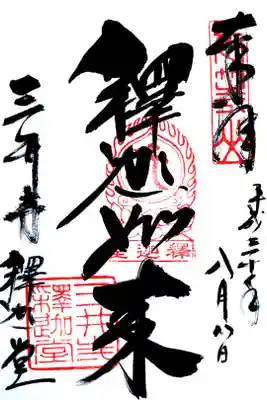 奉拝
平成三十年
八月八日
釋迦如来
三井寺 釋迦堂
三井寺
釋迦堂